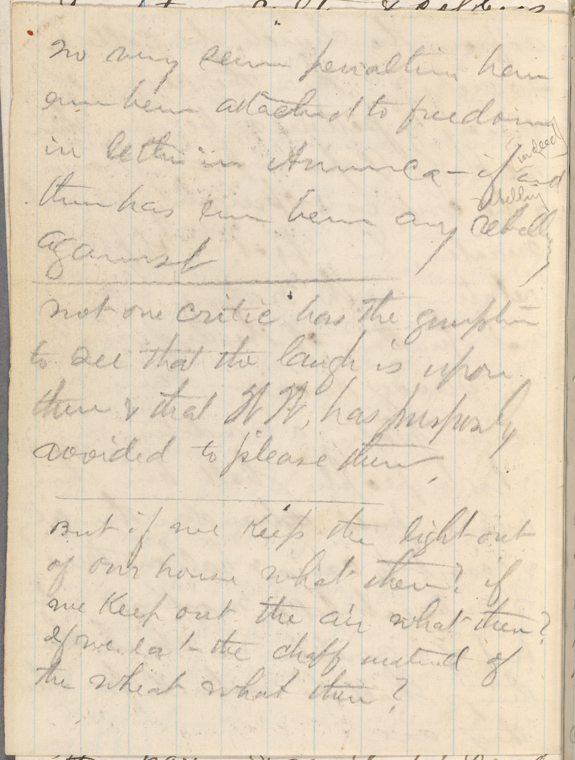 No very severe penalties have
ever been attached to freedom
in letters in America – if indeed and
there has ever been any rebell
against
not one critic has the gumption
to see that the laugh is upon
them & that W W, has purposely
avoided to please them,
But if we keep the light out
of our house what then? if
we keep out the air what then?
If we eat the chaff instead of
the wheat what then?